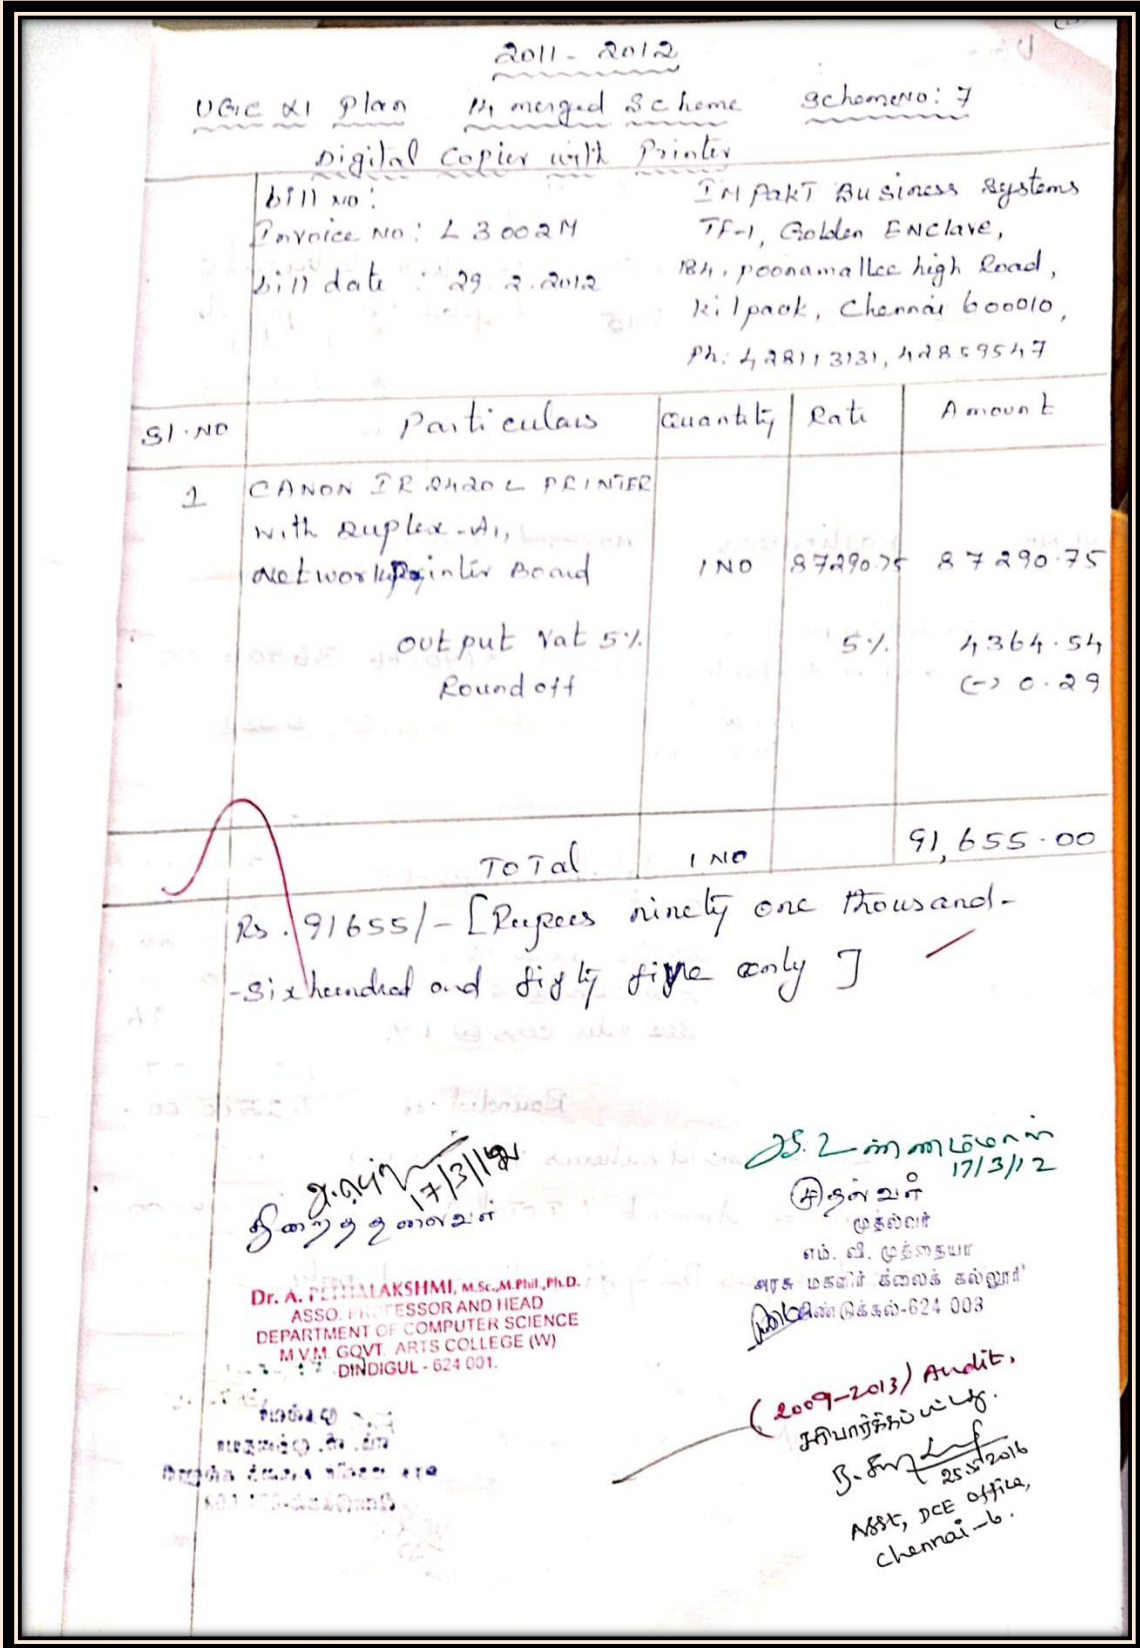 2011 - 2012
UGC XI Plan 14 merged Scheme Scheme NO: 7
Digital Copier with Printer
bill no:
Invoice No: L3002M
bill date : 29.2.2012
IMPAKT Business Systems
TF-1, Golden ENclave,
184, poonamallee high Road,
Kilpaok, Chennai 600010,
Ph: 428113131, 42859547
Sl.NO Particulars Quantity Rate Amount
1 CANON IR 2420 L PRINTER
with Duplex-A1,
Network Printer Board 1 NO 87290.75 87290.75
Output Vat 5% 5% 4364.54
Round off (-) 0.29
TOTal 1 NO 91,655.00
Rs. 91655/- [Rupees ninety one thousand-
-six hundred and fifty five only ]
17/3/12
துறைத்தலைவர்
17/3/12
முதல்வர்
முதல்வர்
எம். வி. முத்தையா
அரசு மகளிர் கலைக் கல்லூரி
திண்டுக்கல்-624 003
Dr. A. PETHALAKSHMI, M.Sc.,M.Phil.,Ph.D.
ASSO. PROFESSOR AND HEAD
DEPARTMENT OF COMPUTER SCIENCE
M.V.M. GOVT. ARTS COLLEGE (W)
DINDIGUL - 624 001.
(2009-2013) Audit.
சரிபார்க்கப்பட்டது.
25.5.2016
Asst, DCE office,
Chennai-6.